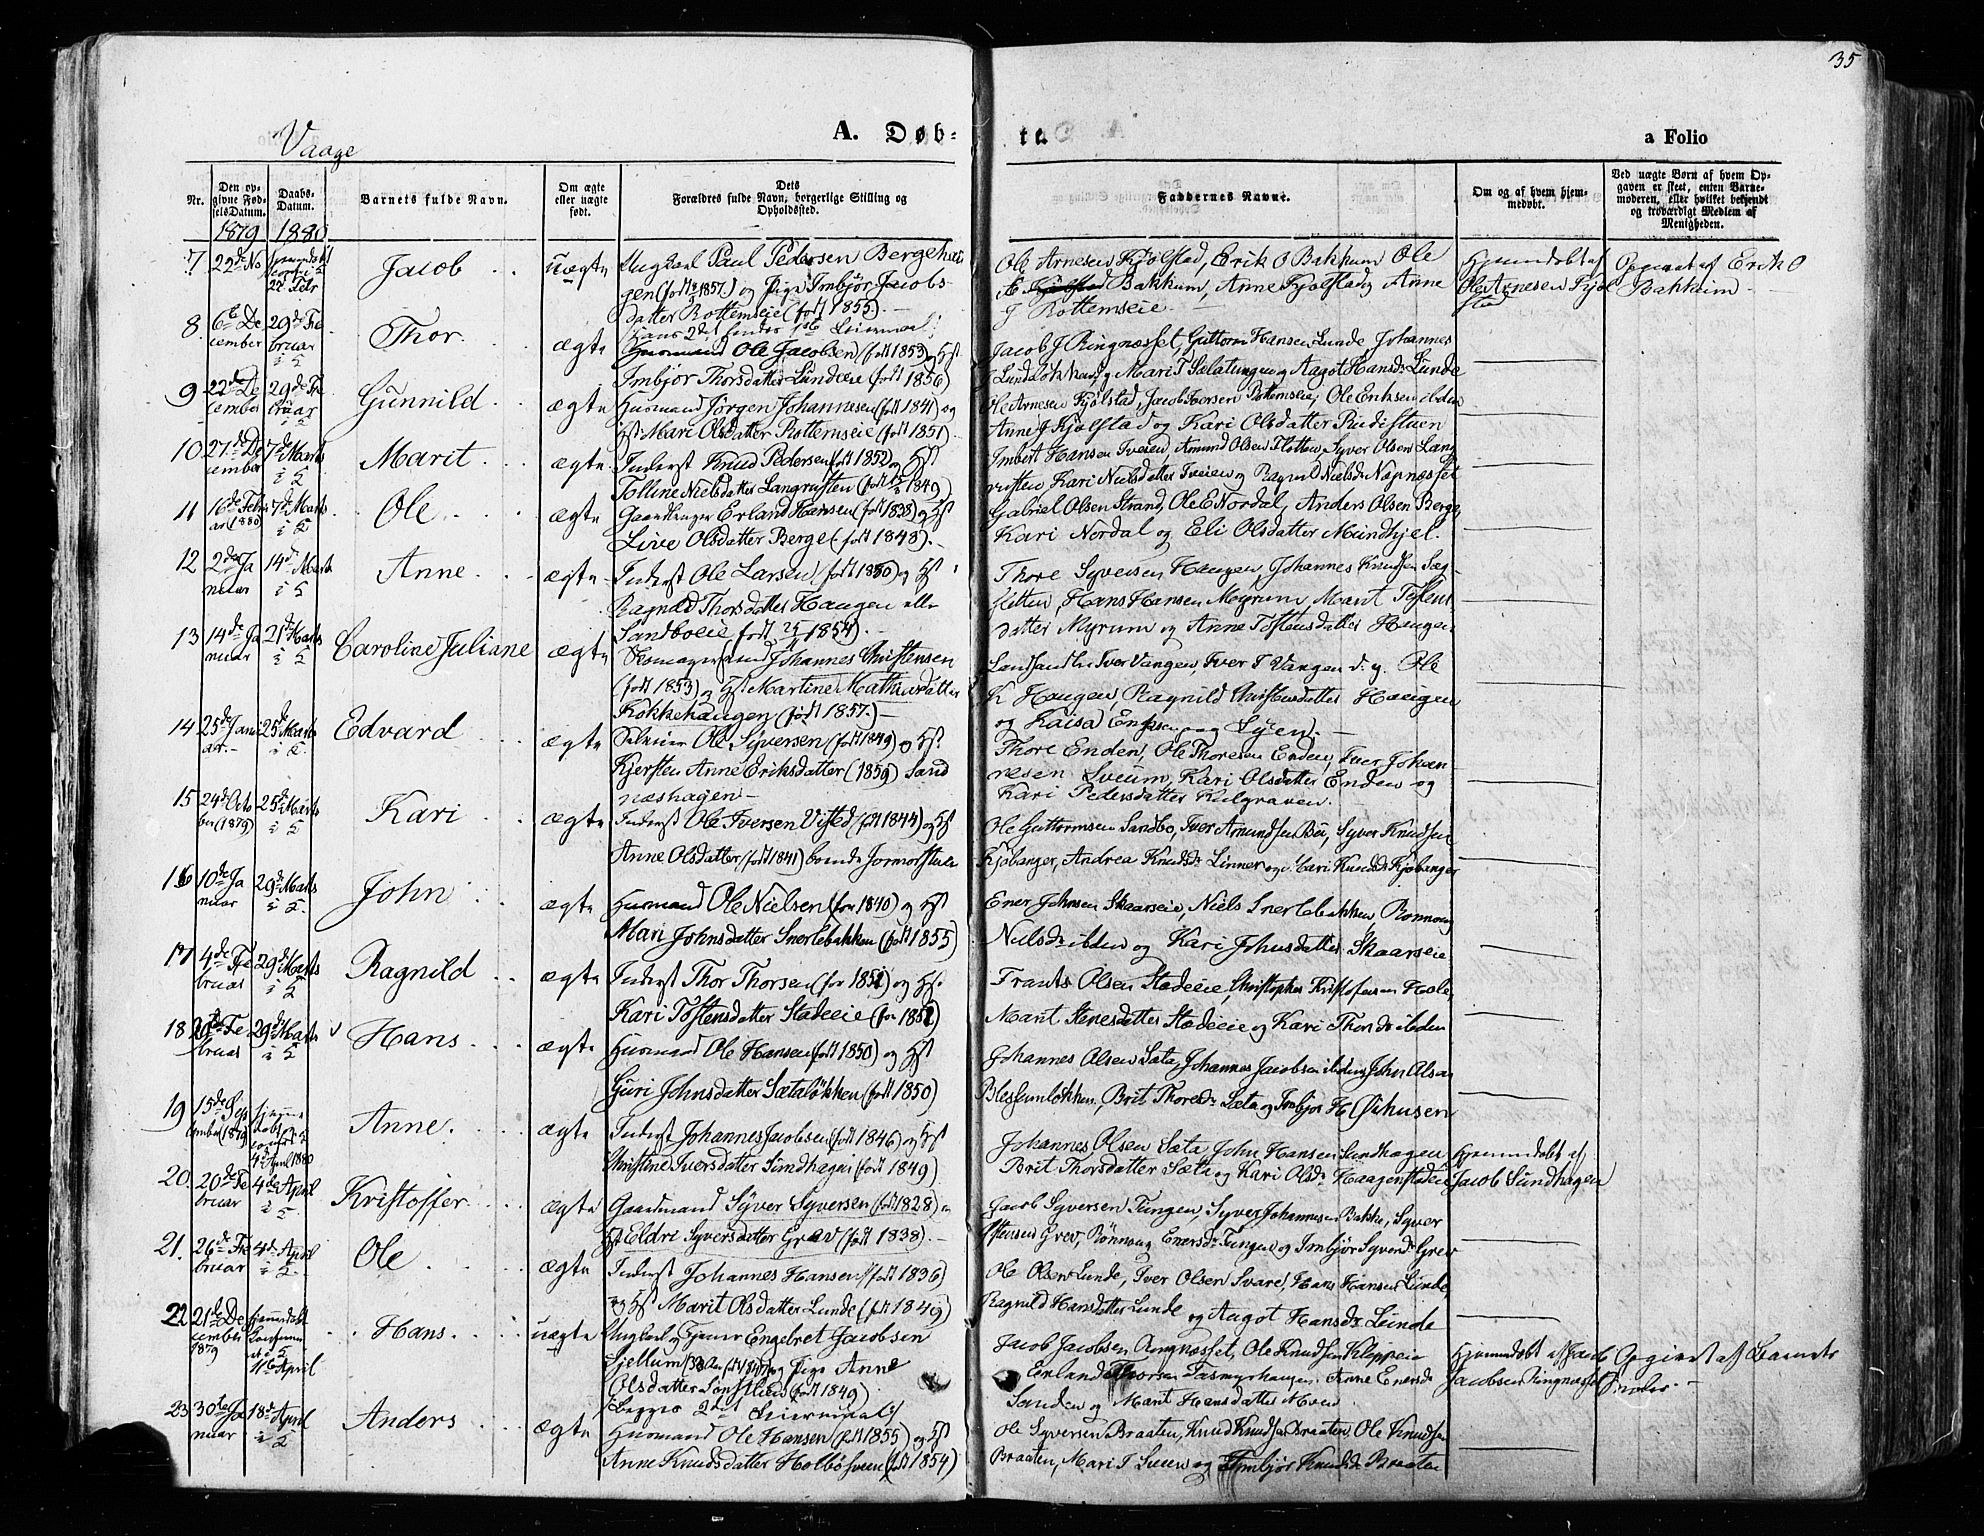 35
Vaage
A. Døb-
te.
a Folio
Nr.
Den opgivne Fødsels Datum.
Daabs-Datum.
Barnets fulde Navn.
Om ægte eller uægte født.
Dets Forældres fulde Navn, borgerlige Stilling og Opholdssted.
Faddernes Navne.
Om og af hvem hjemmedøbt.
Ved uægte Børn af hvem Opgaven er skeet, enten Barnemoderen, eller hvilket bekjendt og troværdigt Medlem af Menigheden.
1879 1880
7 22de No Jacob uægte Ungkarl Paul Pedersen Bergehau
gen (født 1857) og Pige Imbjør Jacobs-
datter Rottemseie (født 1855).
Ole Arnesen Kjølstad, Erik O Bakkum Ole
E Bakkum, Anne Kjølstad og Anne
J Rottemseie.
Hjemmedøbt af
Ole Arnesen Kjøl
stad
Opgivet af Erik O
Bakkum
8. 6te De 29de Fe
cember bruar
i K
Thor ægte
Husmand Ole Jacobsen (født 1853) og Hst
Imbjør Thorsdatter Lundeeie (født 1856)
Jacob J Ringnæsset, Guttorm Hansen Lunde, Johannes
J Lundeløkken, og Mari T Sælatungen og Aagot Hansdr Lunde
9 22de De 29de Fe
cember bruar
Gunnild ægte
Husmand Jørgen Johannesen (født 1841) og
Hst Mari Olsdatter Rottemseie (født 1851)
Ole Arnesen Kjølstad, Jacob Iversen Rottemseie, Ole Eriksen ibden
Anne J Kjølstad og Kari Olsdatter Rudistuen
10 27de De 7de Marts
cember
Marit ægte
Inderst Knud Pedersen (født 1852) og Hst
Tolline Nielsdatter Langrusten (født 1849)
Imbert Hansen Tveien, Amund Olsen Flotten, Syver Olsen Lang
rusten Kari Nielsdatter Tveien og Ragnil Nielsdr Næpnæsset
11 16de Febr 7de Marts
(1880)
Ole ægte
Gaardbruger Erland Hansen (født 1838) og Hst
Live Olsdatter Berge (født 1848).
Gabriel Olsen Strand, Ole E Nordal, Anders Olsen Berge
Kari Nordal og Eli Olsdatter Mundhjel.
12 2den Ja 14de Marts
nuar
Anne ægte
Inderst Ole Larsen (født 1850) og Hst
Ragnild Thorsdatter Haugen eller
Sandboeie født 1854).
Thore Syversen Haugen, Johannes Knudsen Sæg
fletten, Hans Hansen Myrum, Marit Tosten
datter Myrum og Anne Tostensdatter Haugen
13 14de Ja 21de Marts
nuar
Caroline Juliane ægte
Skomagersvend Johannes Christensen
(født 1853) og Hst Martine Mathiasdatter
Kokkehaugen (født 1857.)
Landhandler Iver Vangen, Iver T Vangen d.y. Ole
K Haugen, Ragnild Christensdatter Haugen
og Kaisa
14 25de Janu 25de Marts
ar.
Edvard ægte
Ole Syversen (født 1849) og Hst.
Kjersten Anne Eriksdatter (1859) Sand
næshagen
Thore Enden, Ole Thoresen Enden, Iver Johan
nesen Sveum, Kari Olsdatter Enden og
Kari Pedersdatter Kulgraven.
15 24de Octo 25de Marts
ber (1879)
Kari ægte
Inderst Ole Iversen Visted (født 1844) og Hst
Anne Olsdatter, (født 1841) boende Jormostuen
Ole Guttormsen Sandbo, Iver Amundsen Bø, Syver Knudsen
Kjøbanger, Andrea Knudsdr Linner og Mari Knudsdr Kjøbanger
16 10de Ja 29de Marts
nuar
John ægte
Husmand Ole Nielsen (før 1840) og Hst
Mari Johnsdatter Snerlebakken (født 1855)
Ener Johnsen Skaarseie, Niels Snerlebakken, Rønnoug
Nielsdr ibden og Kari Johnsdatter Skaarseie
17 4de Fe 29de Marts
bruar
Ragnild ægte
Inderst Thor Thorsen (før 1851) og Hst.
Kari Tostensdatter Stadeeie (før 1852)
Frants Olsen Stadeeie, Christopher Kristofersen Hole,
Marit Stenesdatter Stadeeie og Kari Thorsdr ibden
18 Fe 29de Marts
bruar
Hans ægte
Husmand Ole Hansen (født 1850) og Hst
Guri Johnsdatter Sætaløkken (født 1850)
Johannes Olsen Sæta, Johannes Jacobsen ibden, John Olsen
Blessumløkken, Brit Thoresdr Sæta og Imbjør H Øihusen
19 15de Sep Hjemme
tember (1879) 4de April 1880
Anne. ægte
Inderst Johannes Jacobsen (født 1846) og Hst
Christine Iversdatter Sundhagen (født 1849).
Johannes Olsen Sæta, John Hansen Sundhagen
Brit Thorsdatter Sæta og Kari Olsdr Haagenstadeie
Hjemmedøbt af
Jacob Sundhagen
20. 20de Fe 4de April
bruar
Kristoffer ægte
Gaardmand Syver Syversen (født 1828) og
Hst Eldri Syversdatter Grev (født 1838).
Jacob Syversen Tungen, Syver Johannesen Bakke, Syver
Ostensen Grev, Rønnoug Enersdr Tungen og Imbjør Syversdr Grev
21. 26de Fe 4de April
bruar
Ole ægte
Inderst Johannes Hansen (født 1836)
og Hst Marit Olsdatter Lunde (født 1849)
Ole Olsen Lunde, Iver Olsen Svare, Hans Hansen Lunde,
Ragnild Hansdatter Lunde og Aagot Hansdr Lunde
22 21de De Hjemmedøbt
cember
1879 11te April
Hans. uægte
Ungkarl og Tjener Engebret Jacobsen
Sjellum (født 1847) og Pige Anne
Olsdatter (født 1849)
Begges 2det Leiermaal
Jacob Jacobsen Ringnæsset, Ole Knudsen Kleppeie
Erland Thorsen Tasmyrhaugen, Anne Enersdr
Sanden og Marit Hansdatter Moen.
Hjemmedøbt af Jacob
Jacobsen Ringnæsset
Opgivet af Barnets
Moder.
23 30te Ja 18de April
nuar
Anders ægte
Husmand Ole Hansen (født 1855) og Hst
Anne Knudsdatter Holbøsveen (født 1854)
Ole Syversen Braaten, Knud Knudsen Braaten, Ole Knudsen
Braaten, Mari T Sveen og Imbjør Knudsdr Braaten